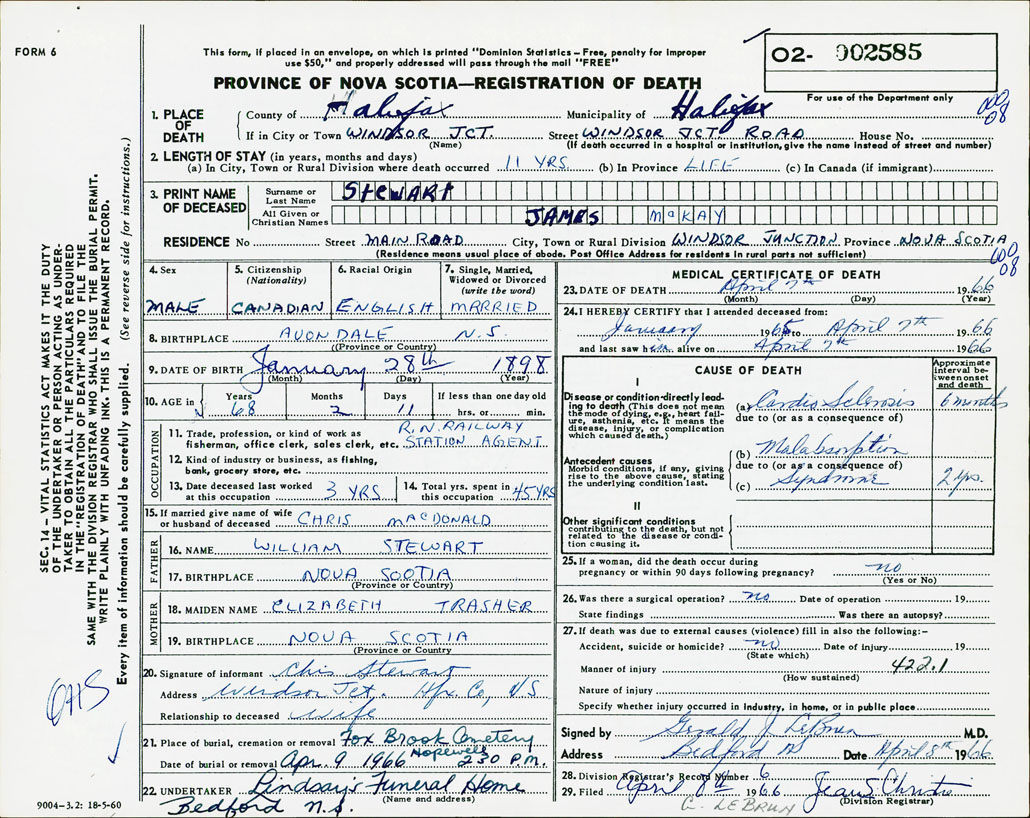 FORM 6
This form, if placed in an envelope, on which is printed "Dominion Statistics – Free, penalty for improper
use $50," and properly addressed will pass through the mail "FREE"
02- 002585
For use of the Department only
PROVINCE OF NOVA SCOTIA—REGISTRATION OF DEATH
1. PLACE OF DEATH
County of Halifax Municipality of Halifax
000 08
If in City or Town WINDSOR JCT. Street WINDSOR JCT. ROAD House No.
(Name) (If death occurred in a hospital or institution, give the name instead of street and number)
2. LENGTH OF STAY (in years, months and days)
(a) In City, Town or Rural Division where death occurred 11 YRS. (b) In Province LIFE (c) In Canada (if immigrant)
3. PRINT NAME OF DECEASED
Surname or Last Name STEWART
All Given or Christian Names JAMES McKAY
RESIDENCE No Street MAIN ROAD City, Town or Rural Division WINDSOR JUNCTION Province NOVA SCOTIA
(Residence means usual place of abode. Post Office Address for residents in rural parts not sufficient)
000 08
4. Sex
MALE
5. Citizenship (Nationality)
CANADIAN
6. Racial Origin
ENGLISH
7. Single, Married, Widowed or Divorced (write the word)
MARRIED
8. BIRTHPLACE AVONDALE N.S.
(Province or County)
9. DATE OF BIRTH January 28th 1898
(Month) (Day) (Year)
10. AGE in Years Months Days If less than one day old
68 2 11 hrs. or min.
OCCUPATION
11. Trade, profession, or kind of work as fisherman, office clerk, sales clerk, etc. R.N. RAILWAY STATION AGENT
12. Kind of industry or business, as fishing, bank, grocery store, etc.
13. Date deceased last worked at this occupation 3 YRS
14. Total yrs. spent in this occupation 45 YRS
15. If married give name of wife or husband of deceased CHRIS MACDONALD
FATHER
16. NAME WILLIAM STEWART
17. BIRTHPLACE NOVA SCOTIA
(Province or Country)
MOTHER
18. MAIDEN NAME ELIZABETH TRASHER
19. BIRTHPLACE NOVA SCOTIA
(Province or Country)
20. Signature of informant Chis Stewart
Address Windsor Jct. Hfx. Co, N/S
Relationship to deceased Wife
21. Place of burial, cremation or removal Fox Brook Cemetery
Hopewell
Date of burial or removal Apr. 9 1966 2 30 P.M.
22. UNDERTAKER Lindsay's Funeral Home
(Name and address)
Bedford N.S.
MEDICAL CERTIFICATE OF DEATH
23. DATE OF DEATH April 7th 1966
(Month) (Day) (Year)
24. I HEREBY CERTIFY that I attended deceased from:
January 1965 to April 7th 1966
and last saw him alive on April 7th 1966
CAUSE OF DEATH
Approximate interval between onset and death
I
Disease or condition directly leading to death (This does not mean the mode of dying, e.g., heart failure, asthenia, etc. It means the disease, injury, or complication which caused death.)
(a) Cardio Sclerosis 6 months
due to (or as a consequence of)
Antecedent causes
Morbid conditions, if any, giving rise to the above cause, stating the underlying condition last.
(b) Malabsorption
due to (or as a consequence of)
(c) Syndrome 2 yrs.
II
Other significant conditions contributing to the death, but not related to the disease or condition causing it.
25. If a woman, did the death occur during pregnancy or within 90 days following pregnancy? no
(Yes or No)
26. Was there a surgical operation? no Date of operation 19
State findings Was there an autopsy?
27. If death was due to external causes (violence) fill in also the following:–
Accident, suicide or homicide? no Date of injury 19
(State which)
Manner of injury 422.1
(How sustained)
Nature of injury
Specify whether injury occurred in industry, in home, or in public place
Signed by Gerald J LeBrun M.D.
Address Bedford NS Date April 8th 1966
28. Division Registrar's Record Number 6
29. Filed April 8th 1966 Jean S. Christie
(Division Registrar)
G. LEBRUN
SEC. 14 – VITAL STATISTICS ACT MAKES IT THE DUTY
OF THE UNDERTAKER OR PERSON ACTING AS UNDER-
TAKER TO OBTAIN ALL THE PARTICULARS REQUIRED
IN THE "REGISTRATION OF DEATH" AND TO FILE THE
SAME WITH THE DIVISION REGISTRAR WHO SHALL ISSUE THE BURIAL PERMIT.
WRITE PLAINLY WITH UNFADING INK. THIS IS A PERMANENT RECORD.
Every item of information should be carefully supplied. (See reverse side for instructions.)
9004–3.2: 18-5-60